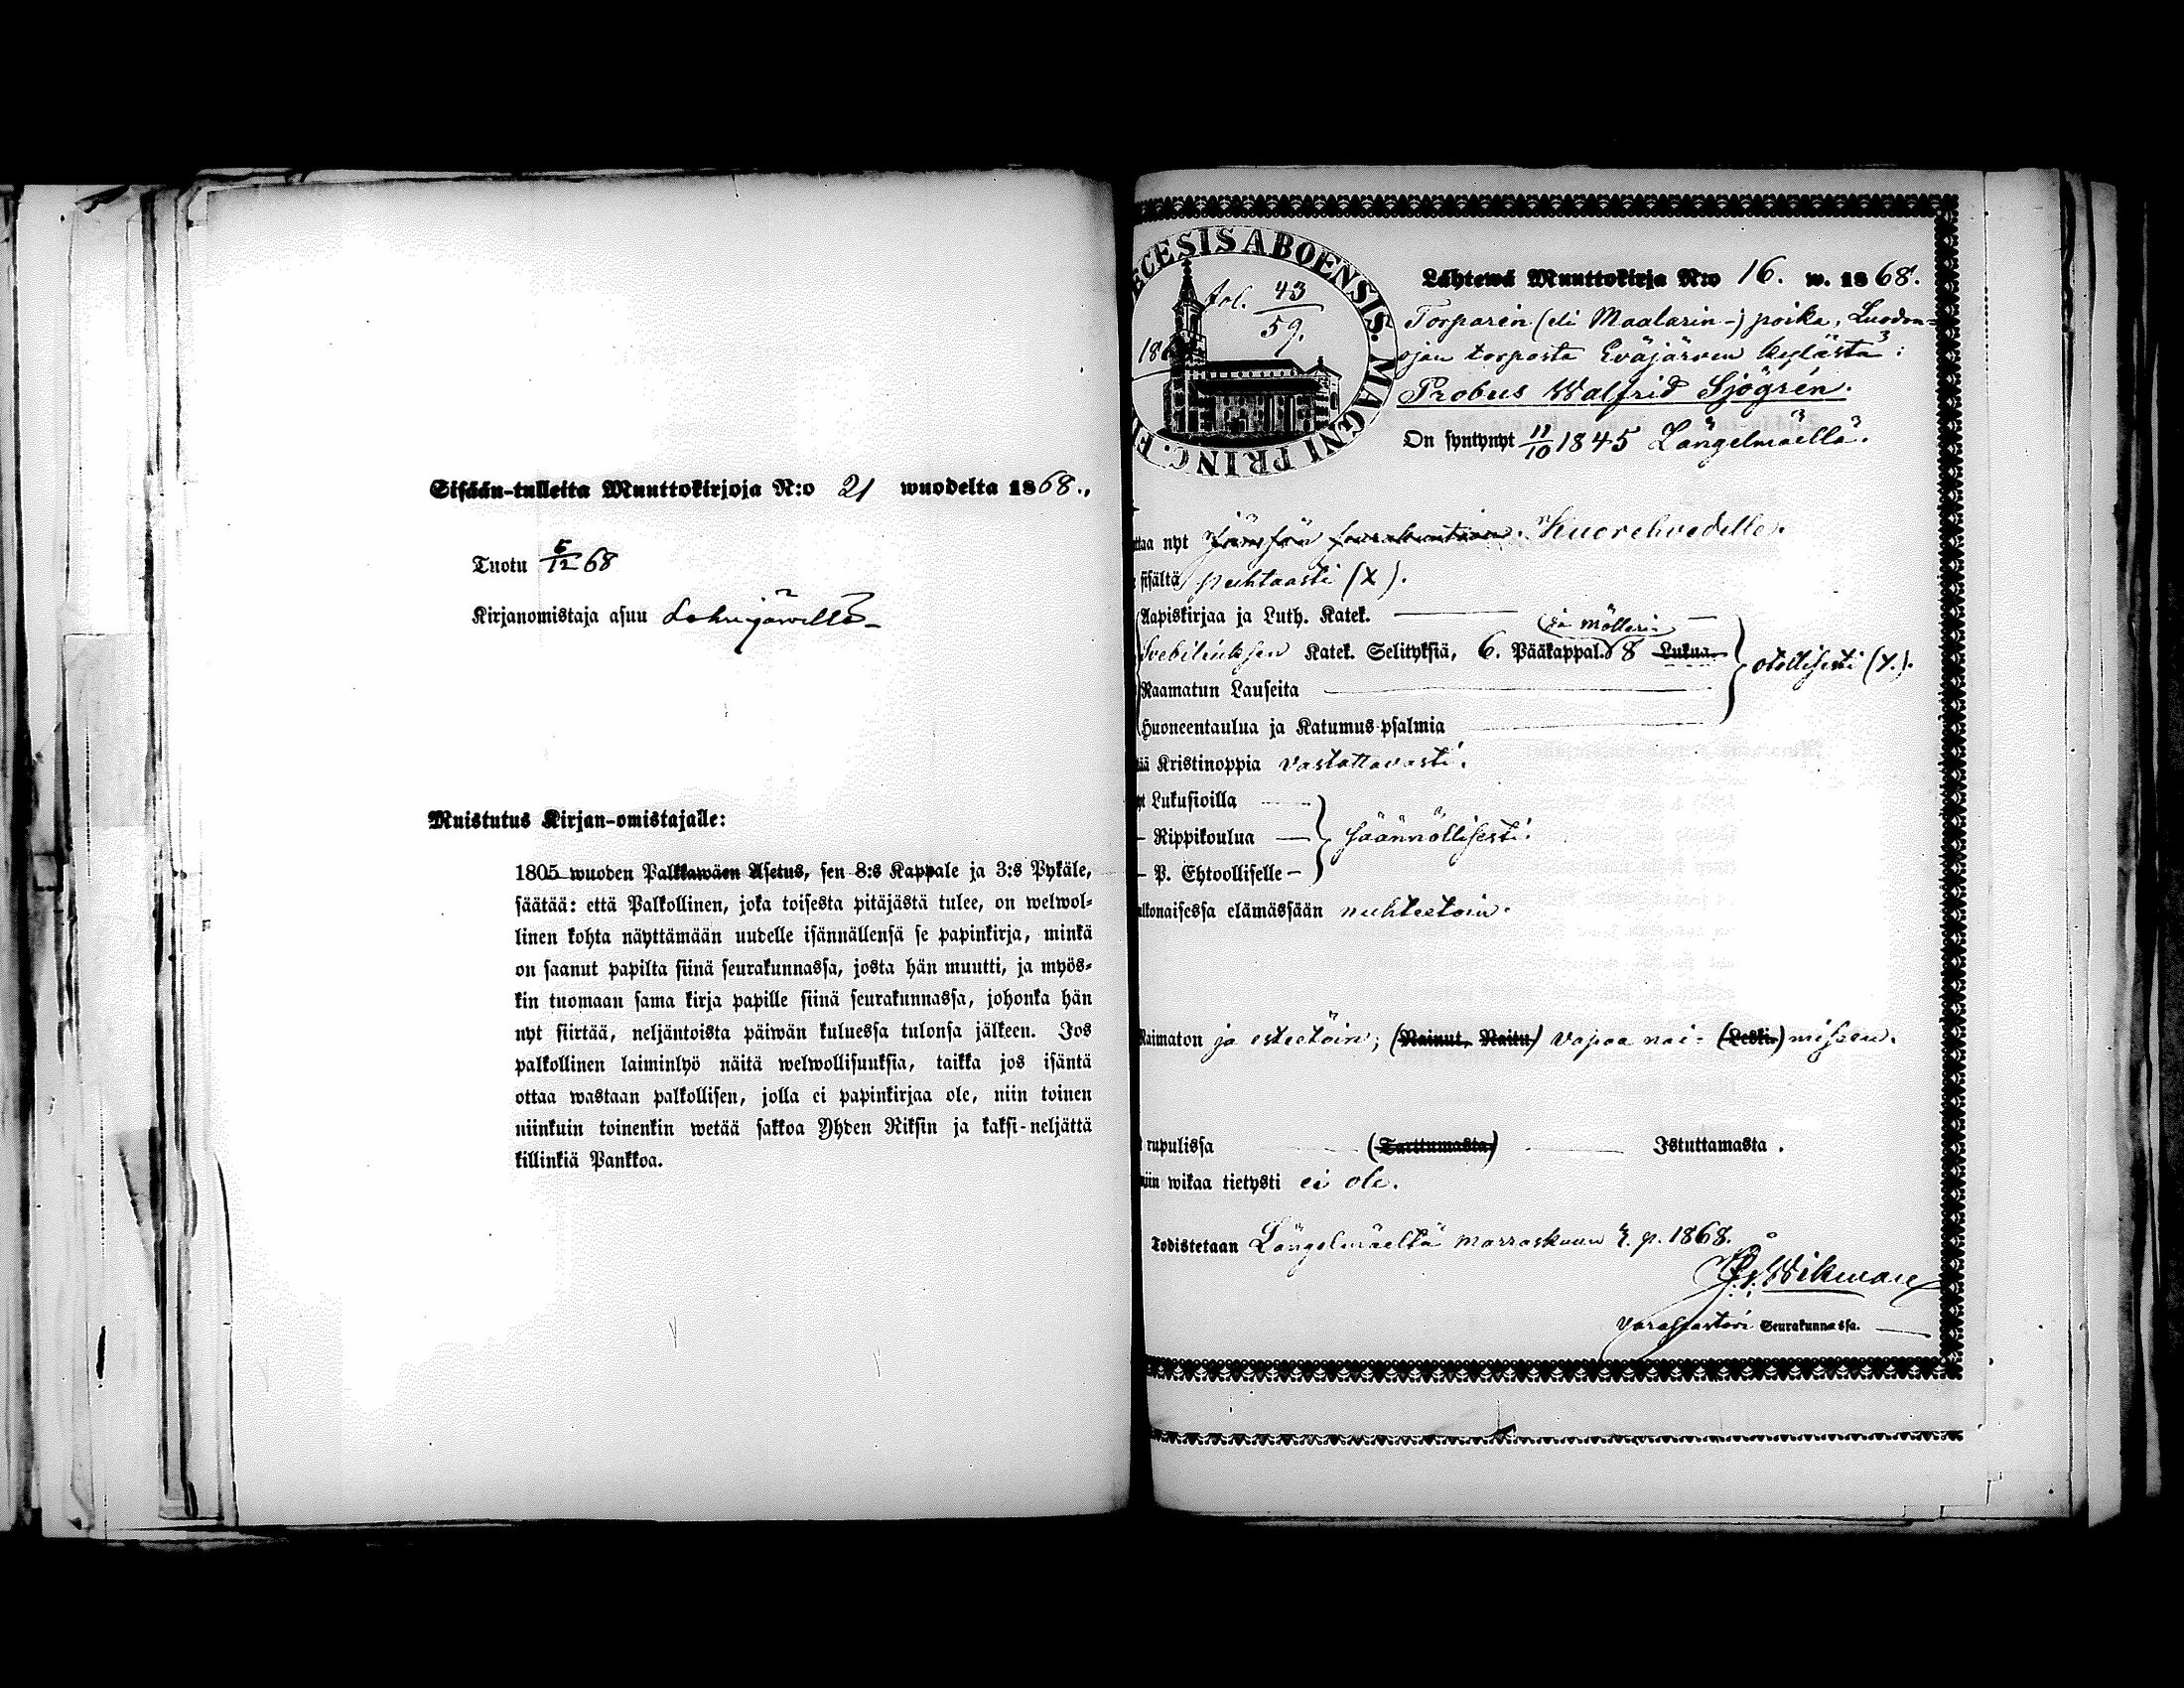 Sisään-tulleita Muuttokirjoja N:o 21 wuodelta 1868.,
Tuotu 5/12 68
Kirjanomistaja asuu
Muistutus Kirjan-omistajalle:
1805 wuoden Palkkawäen Asetus, sen 8:s Kappale ja 3:s Pykäle,
säätää: että Palkollinen, joka toisesta pitäjästä tulee, on welwol-
linen kohta näyttämään uudelle isännällensä se papinkirja, minkä
on saanut papilta siinä seurakunnassa, josta hän muutti, ja myös-
kin tuomaan sama kirja papille siinä seurakunnassa, johonka hän
nyt siirtää, neljäntoista päiwän kuluessa tulonsa jälkeen. Jos
palkollinen laiminlyö näitä welwollisuuksia, taikka jos isäntä
ottaa wastaan palkollisen, jolla ei papinkirjaa ole, niin toinen
niinkuin toinenkin wetää sakkoa Yhden Riksin ja kaksi-neljättä
killinkiä Pankkoa.
ECESIS ABOENSIS. MAGNI PRINC.
fol. 43/59.
Lähtewä Muuttokirja N:o 16. w. 1868.
Torparin (eli Maalarin-) poika, Luodon-
ojan torpasta Eväjärven kylästä:
Probus Walfrid Sjögrén.
On syntynyt 11/10 1845 Längelmäellä.
nyt Jämsän seurakuntaan. Kuorehvedelle.
sisältä puhtaasti (X).
Aapiskirjaa ja Luth. Katek.
ja mölleri
Svebiliuksen Katek. Selityksiä, 6. Pääkappal. 8 Lukua.
otollisesti (X).
Raamatun Lauseita
Huoneentaulua ja Katumus-psalmia
Kristinoppia vastattavasti.
Lukusioilla
Rippikoulua
säännöllisesti.
P. Ehtoolliselle
elämässään nuhteetoin.
Naimaton ja esteetöin; (Nainut, Naitu) vapaa nai- (Leski.) miseen.
rupulissa (Tarttumasta) Istuttamasta.
wikaa tietysti ei ole.
Todistetaan Längelmäeltä marraskuun p. 1868.
Wikman
Varapastori Seurakunnassa.